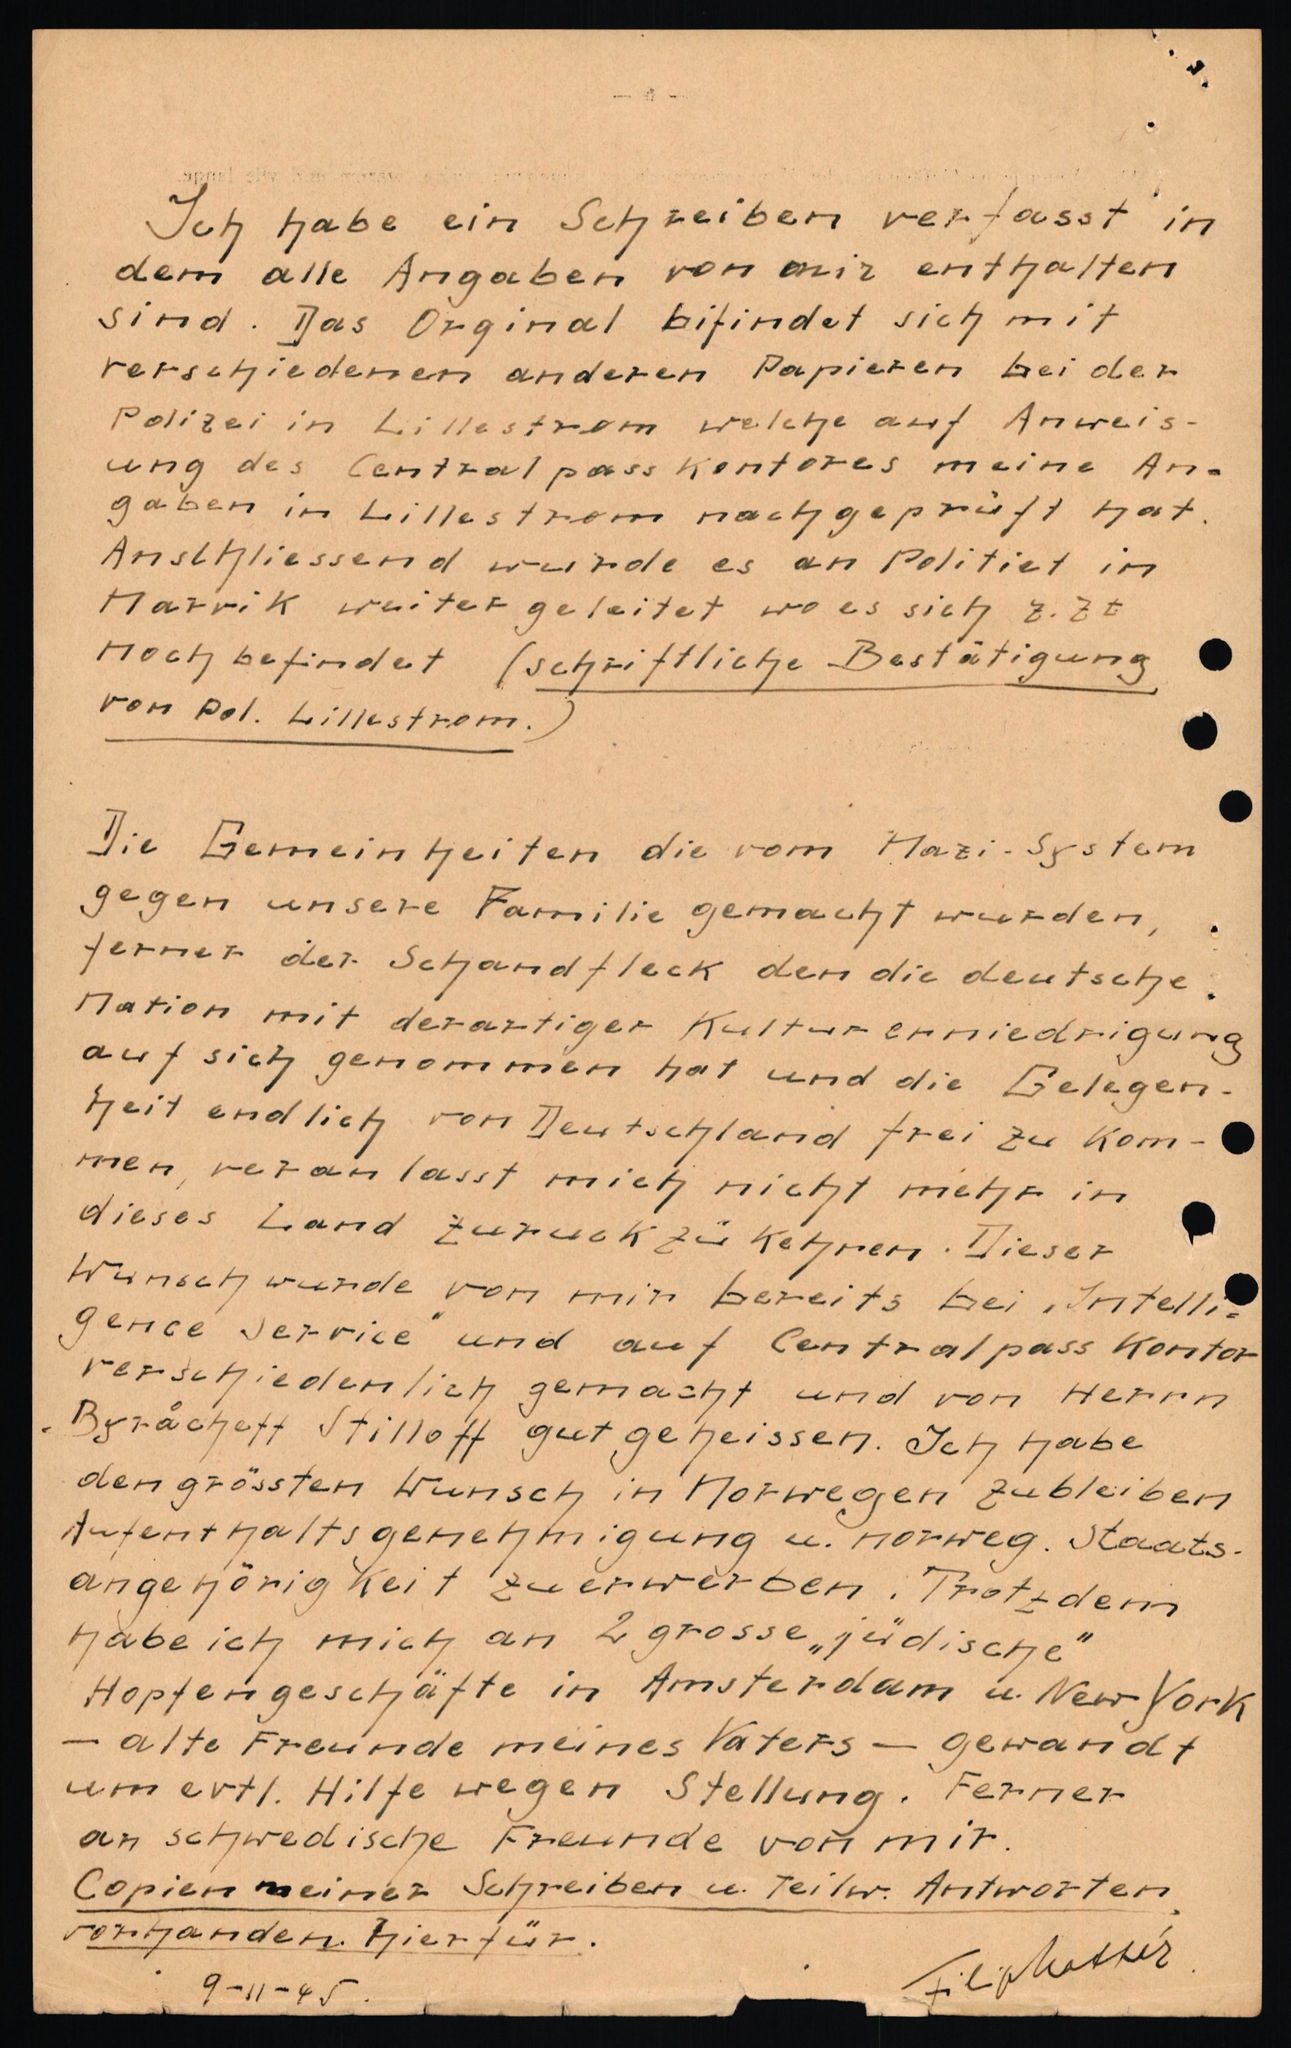 Ich habe ein Schreiben verfasst in
dem alle Angaben von mir enthalten
sind. Das Orginal bifindet sich mit
verschiedenen anderen Papieren bei der
Polizei in Lillestrom welche auf Anweis-
ung des Centralpasskontores meine An-
gaben in Lillestrom nachgeprüft hat.
Anschliessend wurde es an Politiet in
Narvik weitergeleitet wo es sich z.Zt
noch befindet (schriftliche Bestätigung
von Pol. Lillestrom.)
Die Gemeinheiten die vom Nazi-System
gegen unsere Familie gemacht wurden,
ferner der Schandfleck den die deutsche
Nation mit derartiger Kulturerniedrigung
auf sich genommen hat und die Gelegen-
heit endlich von Deutschland frei zu kom-
men, veranlasst mich nicht mehr in
dieses Land zuruckzükehren. Dieser
Wunsch wurde von mir bereits bei „Intelli-
gence Service" und auf Centralpasskontor
verschiedenlich gemacht und von Herrn
Byråcheff Stilloff gutgeheissen. Ich habe
den grössten Wunsch in Norwegen zubleiben
Aufenthaltsgenehmigung u. norweg. Staats-
angehörigkeit zuerwerben. Trotzdem
habe ich mich an 2 grosse „jüdische"
Hopfengeschäfte in Amsterdam u. New York
– alte Freunde meines Vaters – gewandt
um evtl. Hilfe wegen Stellung. Ferner
an schwedische Freunde von mir.
Copien meiner Schreiben u. teilw. Antworten
vorhanden hierfür.
9-11-45. Filip